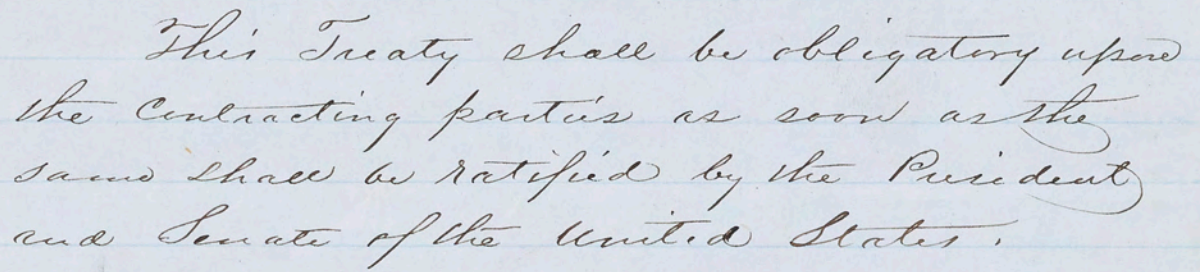 This Treaty shall be obligatory upon
the Contracting parties as soon as the
same shall be ratified by the President
and Senate of the United States.